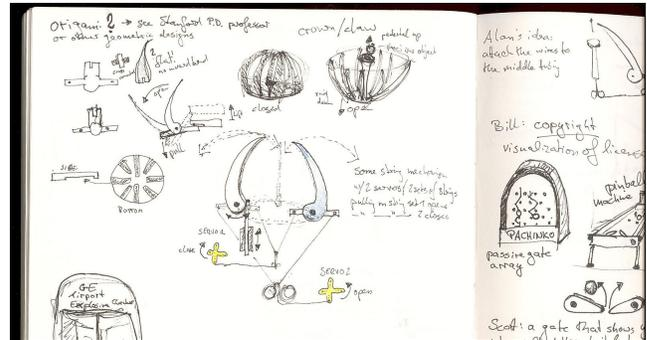 Origami ? → see Stanford P.D. professor
or other geometric designs
crown/claw
pedestal up
precious object
flat:
open
closed
open
Lift
pull
SIDE
BOTTOM
Some string mechanism
w/2 servos/2 sets of strings
pulling on string set 1 opens
2 closes
SERVO1
close
SERVO2
open
GE
Airport
Explosive Checker
Alan's idea:
attach the wires to
the middle tubing
Bill: copyright
visualization of license
pinball
machine
PACHINKO
passive gate
array
Scott: a gate that shows